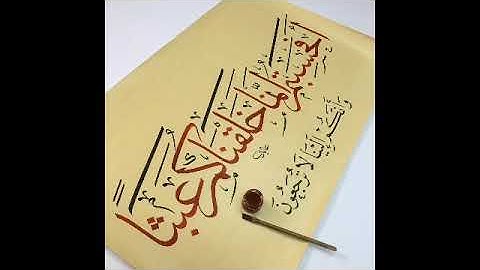 أَفَحَسِبْتُمْ أَنَّمَا خَلَقْنَاكُمْ عَبَثًا
وَأَنَّكُمْ إِلَيْنَا لَا تُرْجَعُونَ